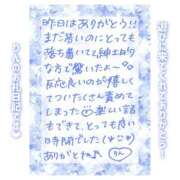 昨日はありがとう!!
まだ若いのにとっても
落ち着いてて、紳士的
な方で驚いたよ〜
反応良いのが嬉しく
てついたくさん責めて
しまった 楽しい話
もできて、とっても良い
時間でした
ありがとね♪ りん
りんのお礼日記です